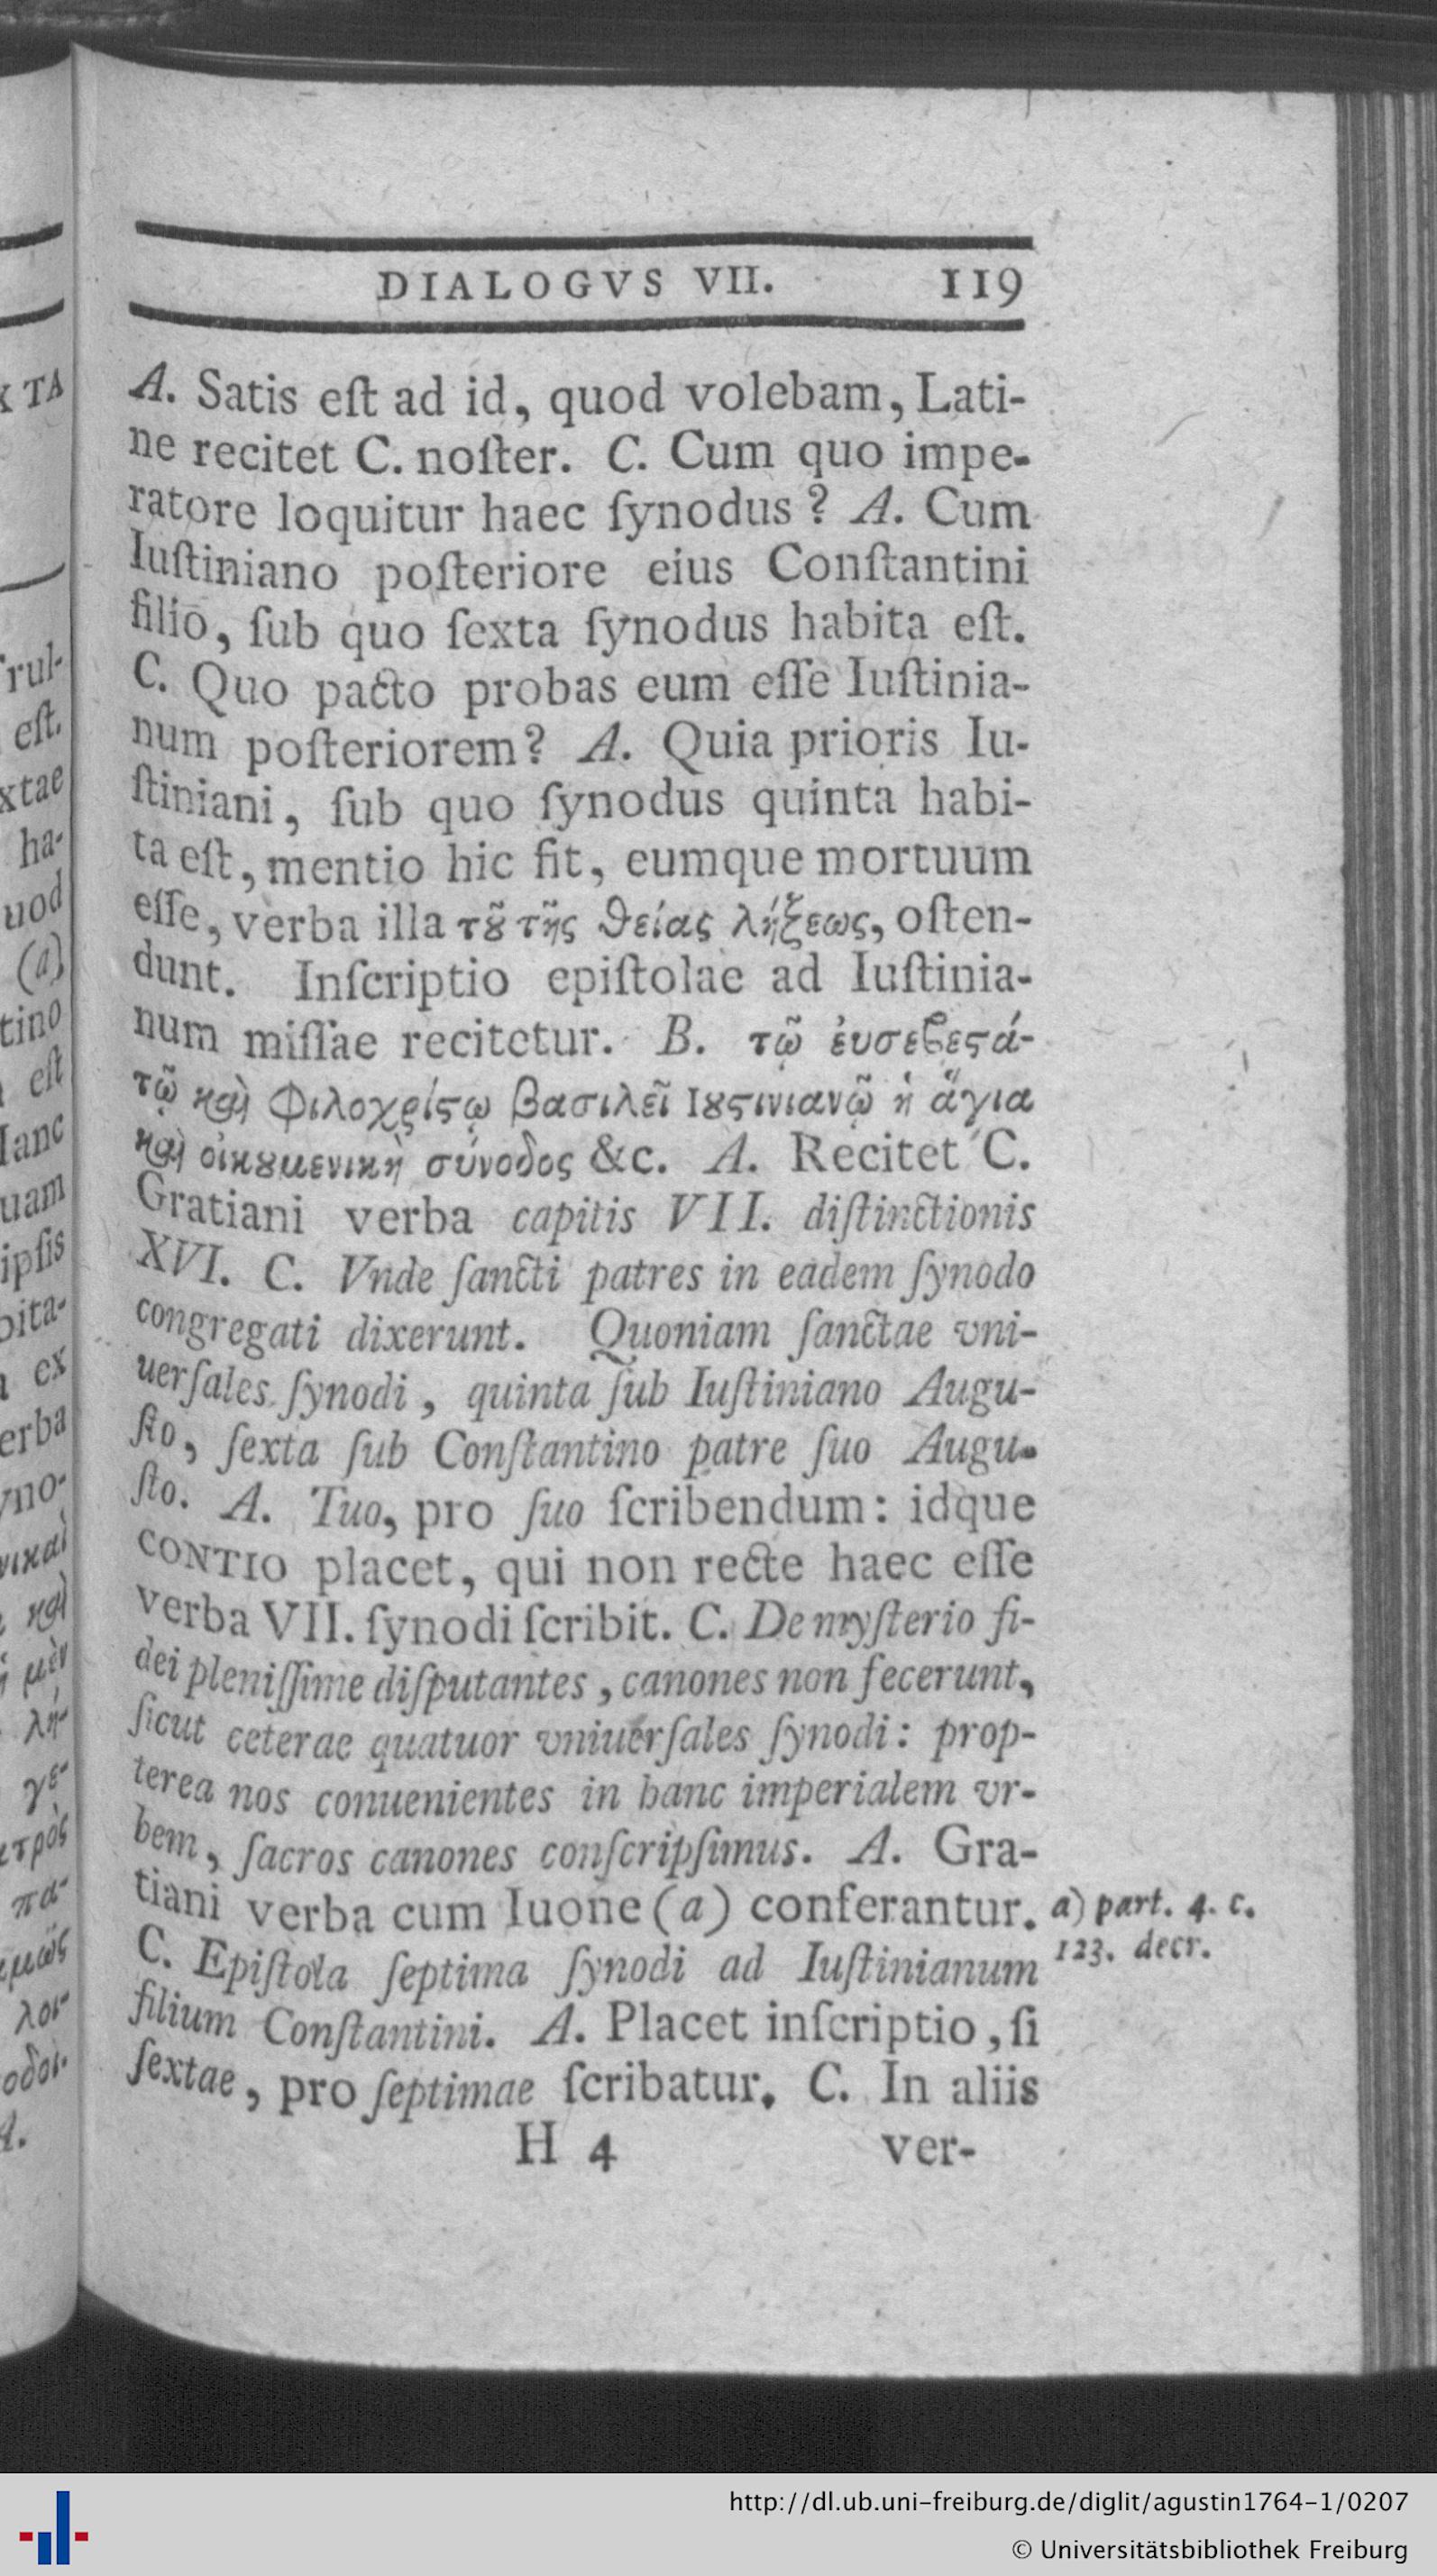 DIALOGVS VII. 119
A. Satis eſt ad id, quod volebam, Lati-
ne recitet C. noſter. C. Cum quo impe-
ratore loquitur haec ſynodus? A. Cum
Iuſtiniano poſteriore eius Conſtantini
filio, ſub quo ſexta ſynodus habita eſt.
C. Quo pacto probas eum eſſe Iuſtinia-
num poſteriorem? A. Quia prioris Iu-
ſtiniani, ſub quo ſynodus quinta habi-
ta eſt, mentio hic fit, eumque mortuum
eſſe, verba illa τȣ͂ τῆς θείας λήξεως, oſten-
dunt. Inſcriptio epiſtolae ad Iuſtinia-
num miſſae recitetur. B. τῷ ἐυσεβεϛά-
τῷ καὶ Φιλοχρίϛῳ βασιλεῖ Ιȣϛινιανῷ ἡ ἅγια
καὶ οἰκȣμενικὴ σύνοδος &c. A. Recitet C.
Gratiani verba capitis VII. diſtinctionis
XVI. C. Vnde ſancti patres in eadem ſynodo
congregati dixerunt. Quoniam ſanctae vni-
uerſales ſynodi, quinta ſub Iuſtiniano Augu-
ſto, ſexta ſub Conſtantino patre ſuo Augu-
ſto. A. Tuo, pro ſuo ſcribendum: idque
CONTIO placet, qui non recte haec eſſe
verba VII. ſynodi ſcribit. C. De myſterio fi-
dei pleniſſime diſputantes, canones non fecerunt,
ſicut ceterae quatuor vniuerſales ſynodi: prop-
terea nos conuenientes in hanc imperialem vr-
bem, ſacros canones conſcripſimus. A. Gra-
tiani verba cum Iuone (a) conferantur. a) part. 4. c.
123. decr.
C. Epiſtola ſeptima ſynodi ad Iuſtinianum
filium Conſtantini. A. Placet inſcriptio, ſi
ſextae, pro ſeptimae ſcribatur. C. In aliis
H 4 ver-
http://dl.ub.uni-freiburg.de/diglit/agustin1764-1/0207
© Universitätsbibliothek Freiburg